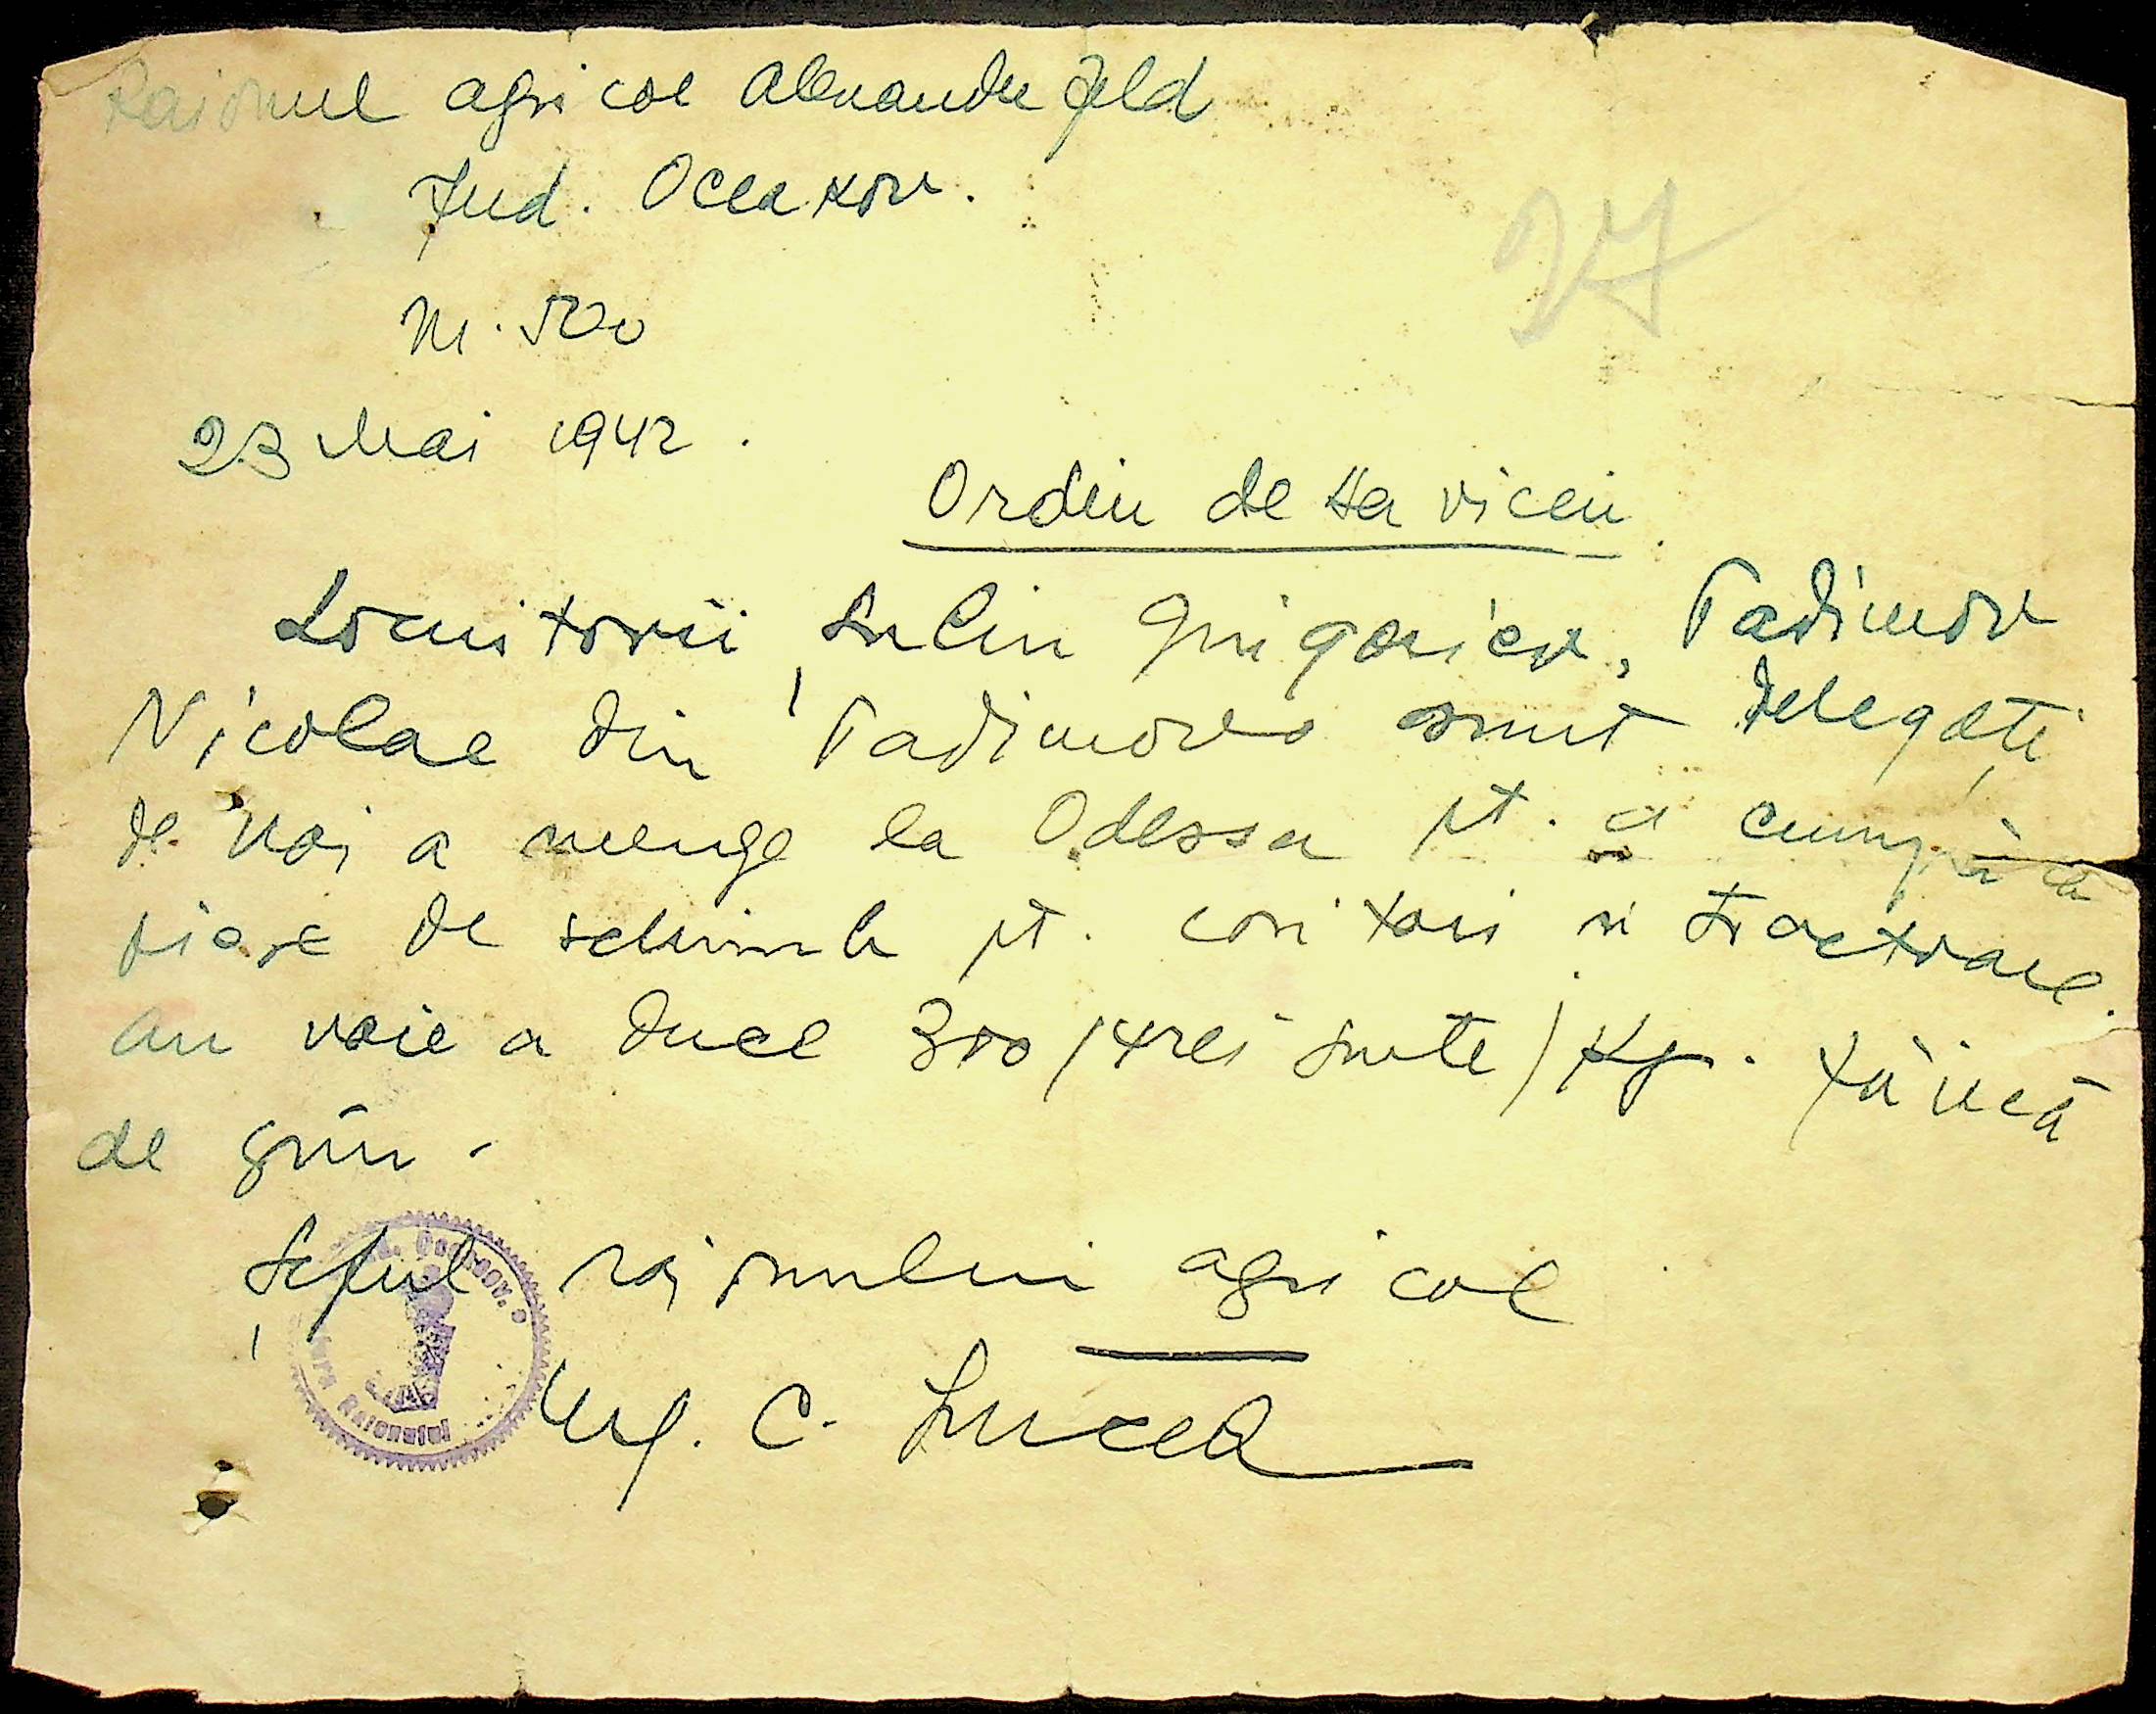 Raionul agricol Alexanderfeld
Jud. Oceakov.
Nr. 500
27
23 Mai 1942.
Ordin de serviciu.
Locuitorii Grigoriev, Vadimov
Nicolae din Vadimovo sunt delegați
de noi a merge la Odessa pt. a cumpăra
piese de schimb pt. cositori și tractoare.
Au voie a duce 300 /trei sute/ Kg. făină
de grîu.
Șeful raionului agricol
Ing. C.
Jud. Oceacov.
Raionului